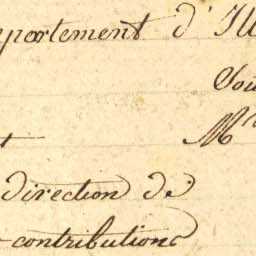 partement d'Ill
Sou
t M
direction de
contributions